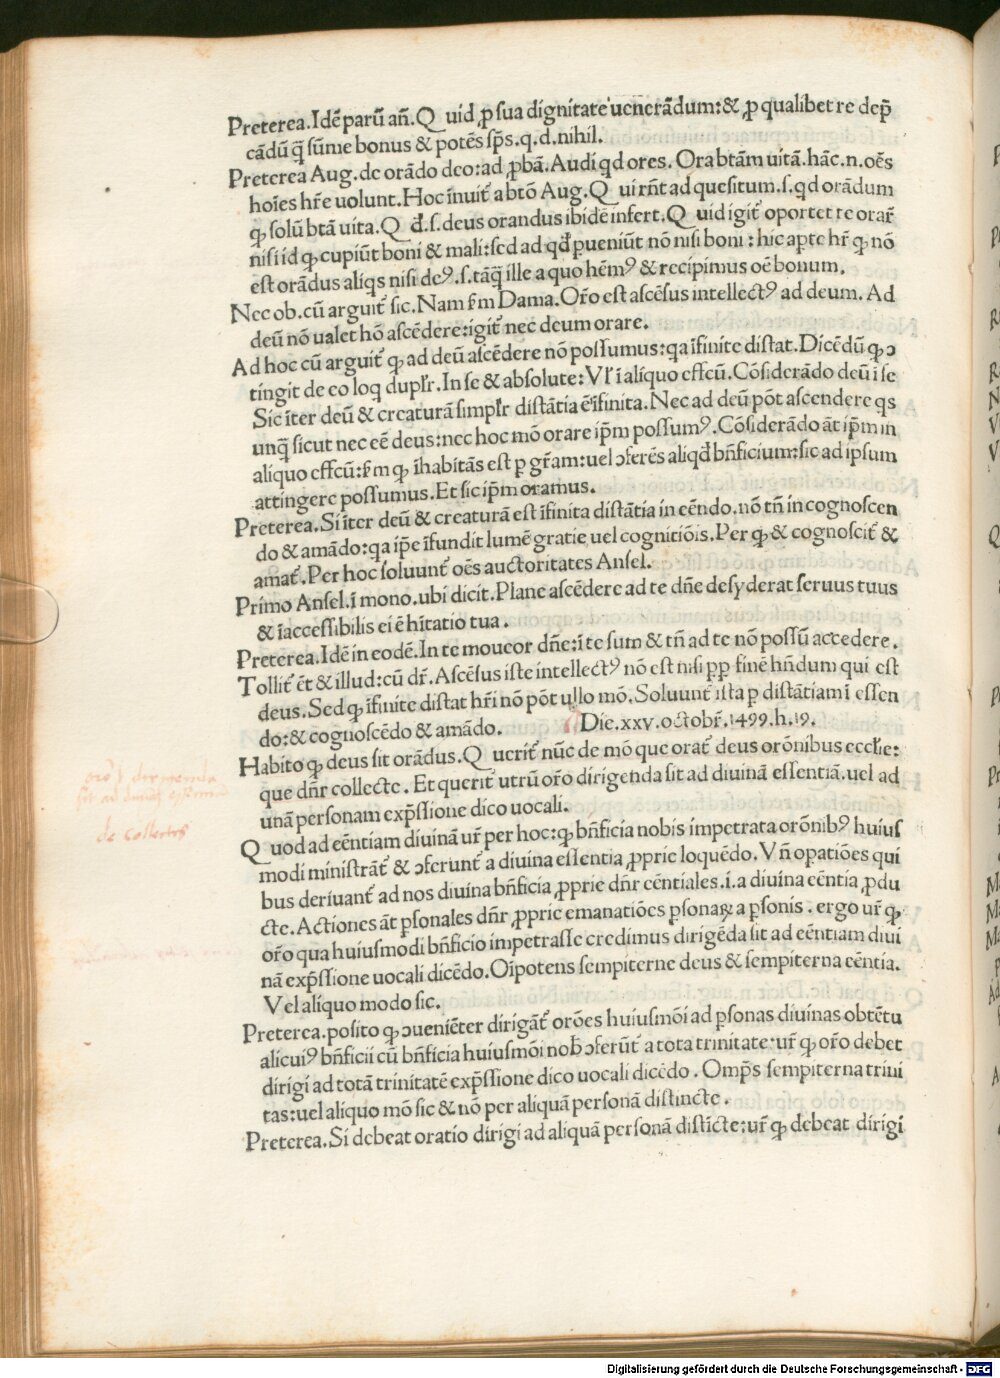 Preterea. Idē parū añ. Q uid ꝓ sua dignitate uenerādum: & ꝓ qualibet re dep̄
cādū q̄ sūme bonus & potēs sp̄s. q. d. nihil.
Preterea Aug. de orādo deo: ad ꝓbā. Audi qd ores. Ora btām uitā. hāc. n. oēs
hoīes hr̄e uolunt. Hoc īnuit̄ a btō Aug. Q ui rn̄t ad quesitum. s. qd orādum
ꝙ solū btā uita. Q đ. s. deus orandus ibidē infert. Q uid igit̄ oportet re orar̄
nisi id ꝙ cupiūt boni & mali: sed ad qđ ꝑueniūt nō nisi boni: hic apte hr̄ ꝙ nō
est orādus aliqs nisi deꝰ. s. tāq̄ ille a quo hēmꝰ & recipimus oē bonum.
Nec ob. cū arguit̄ sic. Nam ẜm Dama. Or̄o est ascēsus intellectꝰ ad deum. Ad
deū nō ualet hō ascēdere: igit̄ nec deum orare.
Ad hoc cū arguit̄ ꝙ ad deū ascēdere nō possumus: qa īfinite distat. Dicēdū ꝙ ↄ
tingit de eo loq duplr̄. In se & absolute: Vl̄ ī aliquo effcū. Cōsiderādo deū ī se
Sic īter deū & creaturā simplr̄ distātia ē īfinita. Nec ad deū pōt ascendere qs
unq̄ sicut nec eē deus: nec hoc mō orare ip̄m possumꝰ. Cōsiderādo āt ip̄m in
aliquo effcū: ẜm ꝙ īhabitās est ꝑ gr̄am: uel ↄferēs aliqđ bn̄ficium: sic ad ipsum
attingere possumus. Et sic ip̄m oramus.
Preterea. Si īter deū & creaturā est īfinita distātia in cēndo. nō tn̄ in cognoscen
do & amādo: qa ip̄e īfundit lumē gratie uel cognitiōis. Per ꝙ & cognoscit̄ &
amat̄. Per hoc soluunt̄ oēs auctoritates Ansel.
Primo Ansel. ī mono. ubi dicit. Plane ascēdere ad te dn̄e desyderat seruus tuus
& īaccessibilis ei ē hītatio tua.
Preterea. Idē in eodē. In te moueor dn̄e: ī te sum & tn̄ ad te nō possū accedere.
Tollit̄ ēt & illud: cū dr̄. Ascēsus iste intellectꝰ nō est nisi ꝓp finē hn̄dum qui est
deus. Sed ꝙ īfinite distat hr̄i nō pōt ullo mō. Soluunt̄ ista ꝑ distātiam ī essen
do: & cognoscēdo & amādo. Die. xxv. octobr̄. 1499. h. 19.
Habito ꝙ deus sit orādus. Q uerit̄ nūc de mō que orat̄ deus orōnibus ecclīe:
que dn̄r collecte. Et querit̄ utrū or̄o dirigenda sit ad diuinā essentiā. uel ad
unā personam exp̄ssione dico uocali.
Q uod ad eēntiam diuinā ur̄ per hoc: ꝙ bn̄ficia nobis impetrata orōnibꝰ huius
modi ministrāt̄ & ↄferunt̄ a diuina essentia ꝓprie loquēdo. Vn̄ opatiōes qui
bus deriuant̄ ad nos diuina bn̄ficia ꝓprie dn̄r eēntiales. i. a diuina eēntia ꝓdu
cte. Actiones āt ꝑsonales dn̄r ꝓprie emanatiōes ꝑsonaꝝ a ꝑsonis. ergo ur̄ ꝙ
or̄o qua huiusmodi bn̄ficio impetrasse credimus dirigēda sit ad eēntiam diui
nā exp̄ssione uocali dicēdo. Oīpotens sempiterne deus & sempiterna eēntia.
Vel aliquo modo sic.
Preterea. posito ꝙ ↄueniēter dirigāt̄ orōes huiusmōi ad ꝑsonas diuinas obtētu
alicuiꝰ bn̄ficii cū bn̄ficia huiusmōi nob̄ ↄferūt̄ a tota trinitate: ur̄ ꝙ or̄o debet
dirigi ad totā trinitatē exp̄ssione dico uocali dicēdo. Omp̄s sempiterna trini
tas: uel aliquo mō sic & nō per aliquā personā distincte.
Preterea. Si debeat oratio dirigi ad aliquā personā distīcte: ur̄ ꝙ debeat dirigi
de collectis
Digitalisierung gefördert durch die Deutsche Forschungsgemeinschaft - DFG